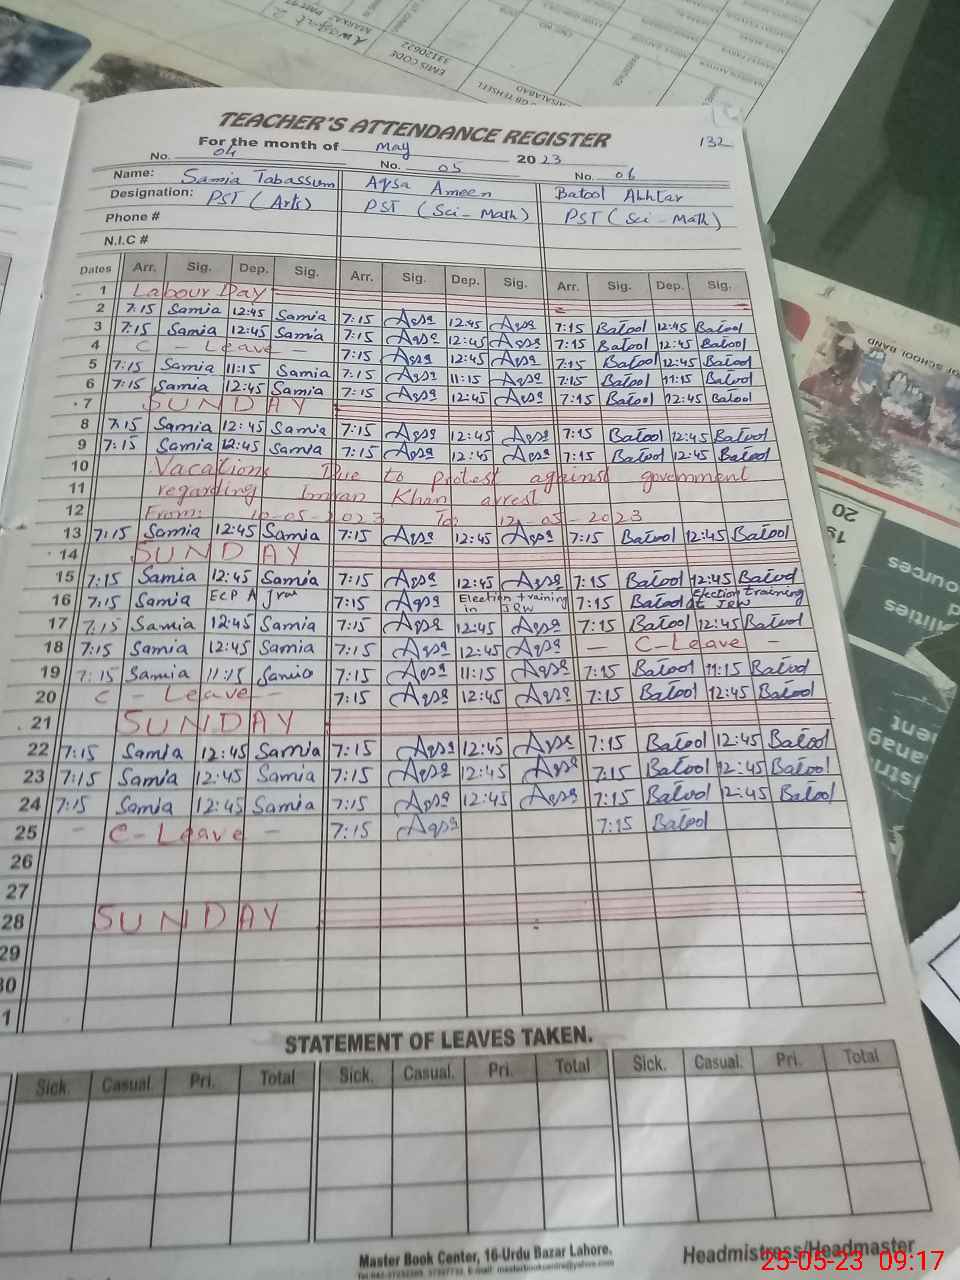 EMIS CODE
33120622
TEACHER'S ATTENDANCE REGISTER
132
For the month of May 2023
No. 04 No. 05 No. 06
Name: Samia Tabassum Aqsa Ameen Batool Akhtar
Designation: PST (Arts) PST (Sci-Math) PST (Sci-Math)
Phone #
N.I.C #
Dates Arr. Sig. Dep. Sig. Arr. Sig. Dep. Sig. Arr. Sig. Dep. Sig.
1 Labour Day
2 7:15 Samia 12:45 Samia 7:15 Aqsa 12:45 Aqsa 7:15 Batool 12:45 Batool
3 7:15 Samia 12:45 Samia 7:15 Aqsa 12:45 Aqsa 7:15 Batool 12:45 Batool
4 C - Leave - 7:15 Aqsa 12:45 Aqsa 7:15 Batool 12:45 Batool
5 7:15 Samia 11:15 Samia 7:15 Aqsa 11:15 Aqsa 7:15 Batool 11:15 Batool
6 7:15 Samia 12:45 Samia 7:15 Aqsa 12:45 Aqsa 7:15 Batool 12:45 Batool
7 SUNDAY
8 7:15 Samia 12:45 Samia 7:15 Aqsa 12:45 Aqsa 7:15 Batool 12:45 Batool
9 7:15 Samia 12:45 Samia 7:15 Aqsa 12:45 Aqsa 7:15 Batool 12:45 Batool
10 Vacations Due to protest against government
11 regarding Imran Khan arrest
12 From: 10-05-2023 To 12-05-2023
13 7:15 Samia 12:45 Samia 7:15 Aqsa 12:45 Aqsa 7:15 Batool 12:45 Batool
14 SUNDAY
15 7:15 Samia 12:45 Samia 7:15 Aqsa 12:45 Aqsa 7:15 Batool 12:45 Batool
16 7:15 Samia ECP A Jrw 7:15 Aqsa Election training in JRW 7:15 Batool Election training at JRW
17 7:15 Samia 12:45 Samia 7:15 Aqsa 12:45 Aqsa 7:15 Batool 12:45 Batool
18 7:15 Samia 12:45 Samia 7:15 Aqsa 12:45 Aqsa - C-Leave -
19 7:15 Samia 11:15 Samia 7:15 Aqsa 11:15 Aqsa 7:15 Batool 11:15 Batool
20 C - Leave - 7:15 Aqsa 12:45 Aqsa 7:15 Batool 12:45 Batool
21 SUNDAY
22 7:15 Samia 12:45 Samia 7:15 Aqsa 12:45 Aqsa 7:15 Batool 12:45 Batool
23 7:15 Samia 12:45 Samia 7:15 Aqsa 12:45 Aqsa 7:15 Batool 12:45 Batool
24 7:15 Samia 12:45 Samia 7:15 Aqsa 12:45 Aqsa 7:15 Batool 12:45 Batool
25 - C-Leave - 7:15 Aqsa 7:15 Batool
26
27
28 SUNDAY
29
30
1
STATEMENT OF LEAVES TAKEN.
Sick. Casual. Pri. Total Sick. Casual. Pri. Total Sick. Casual. Pri. Total
Master Book Center, 16-Urdu Bazar Lahore.
Headmistress/Headmaster
25-05-23 09:17
SCHOOL BAND
20